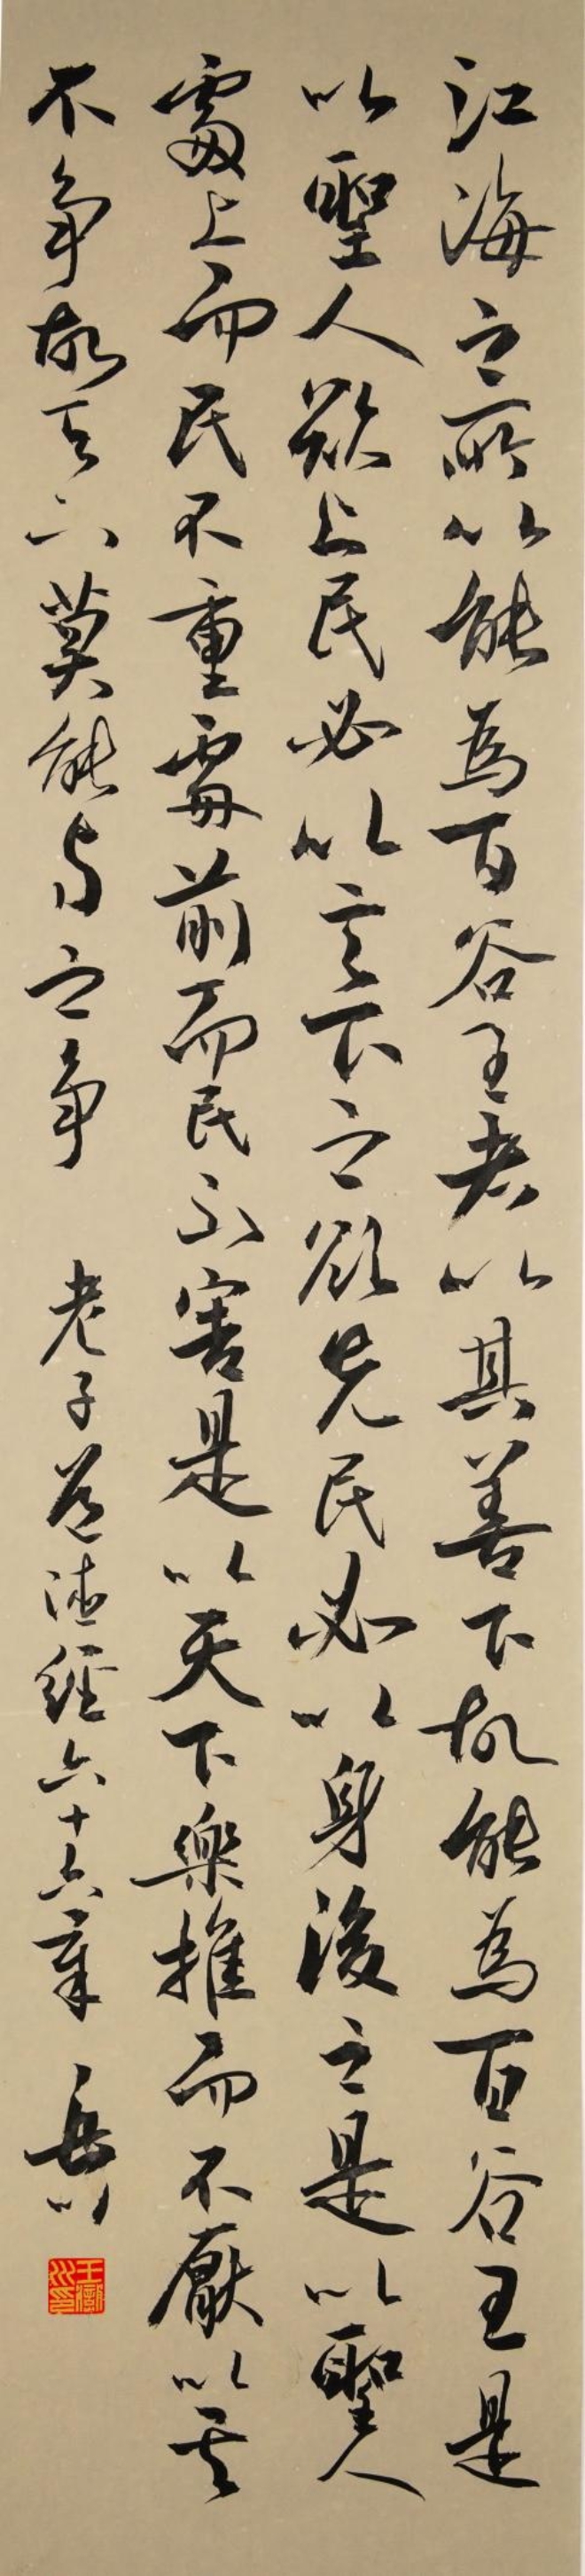 江海之所以能為百谷王者以其善下故能為百谷王是
以聖人欲上民必以言下之欲先民必以身後之是以聖人
處上而民不重處前而民不害是以天下樂推而不厭以其
不爭故天下莫能與之爭 老子道德經六十六章